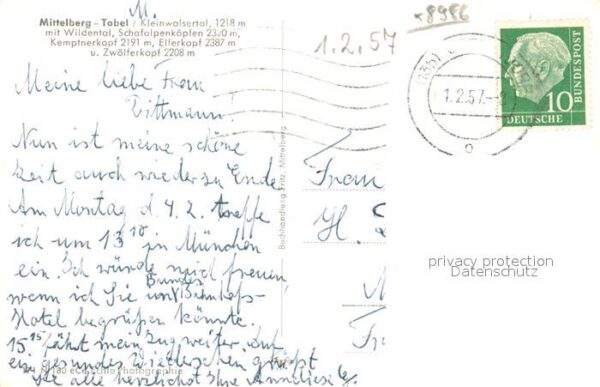 M.
Mittelberg - Tobel / Kleinwalsertal, 1218 m
mit Wildental, Schafalpenköpfen 2320 m,
Kemptnerkopf 2191 m, Elferkopf 2387 m
u. Zwölferkopf 2208 m
1.2.57
*8986
1.2.57.
10
DEUTSCHE
BUNDESPOST
Meine liebe Frau
Dittmann!
Nun ist meine schöne
Zeit auch wieder zu Ende
Am Montag d. 4.2. treffe
ich um 13 10 in München
ein. Ich würde mich freuen,
wenn ich Sie im Bundes
Bahnhofs-
Hotel begrüßen könnte.
15 15 fährt mein Zug weiter. Auf
ein gesundes Wiedersehen grüßt
Sie alle herzlichst Ihre Anneliese G.
Buchhandlung Fritz, Mittelberg
Frau
H. D
M
Fr
privacy protection
Datenschutz
Photographie